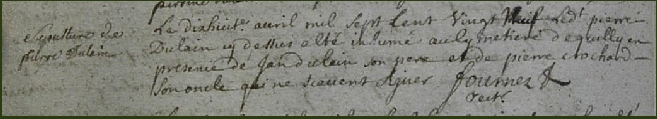 Sepulture de
pierre Dulain
Le dixhuit avril mil sept Cent Vingt Neuf Led.t pierre
Dulain cy dessus a Eté inhumé au cymetiere d'equilly en
presence de Jan dulain son pere et de pierre crochard
Son oncle qui ne scavent signer fournier
rect.